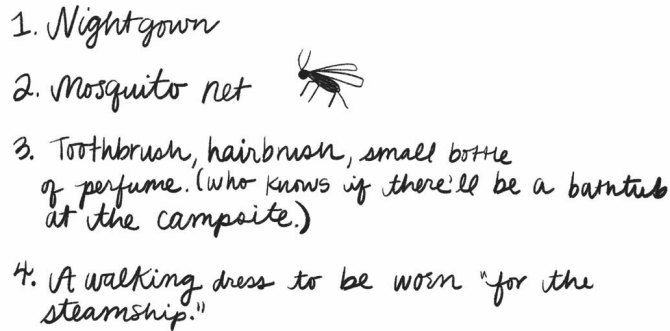 1. Nightgown
2. Mosquito net
3. Toothbrush, hairbrush, small bottle
of perfume. (who knows if there'll be a bathtub
at the campsite.)
4. A walking dress to be worn "for the
steamship."